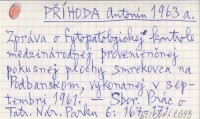 PŘÍHODA Antonín 1963 a.
Zpráva o fytopatologickej kontrole
medzinárodnej provenienčnej
pokusnej plochy smrekovca na
Podbanskom, vykonanej v sep-
tembri 1961. — Sbor. Prác o
Tatr. Nár. Parku 6: 167-172.